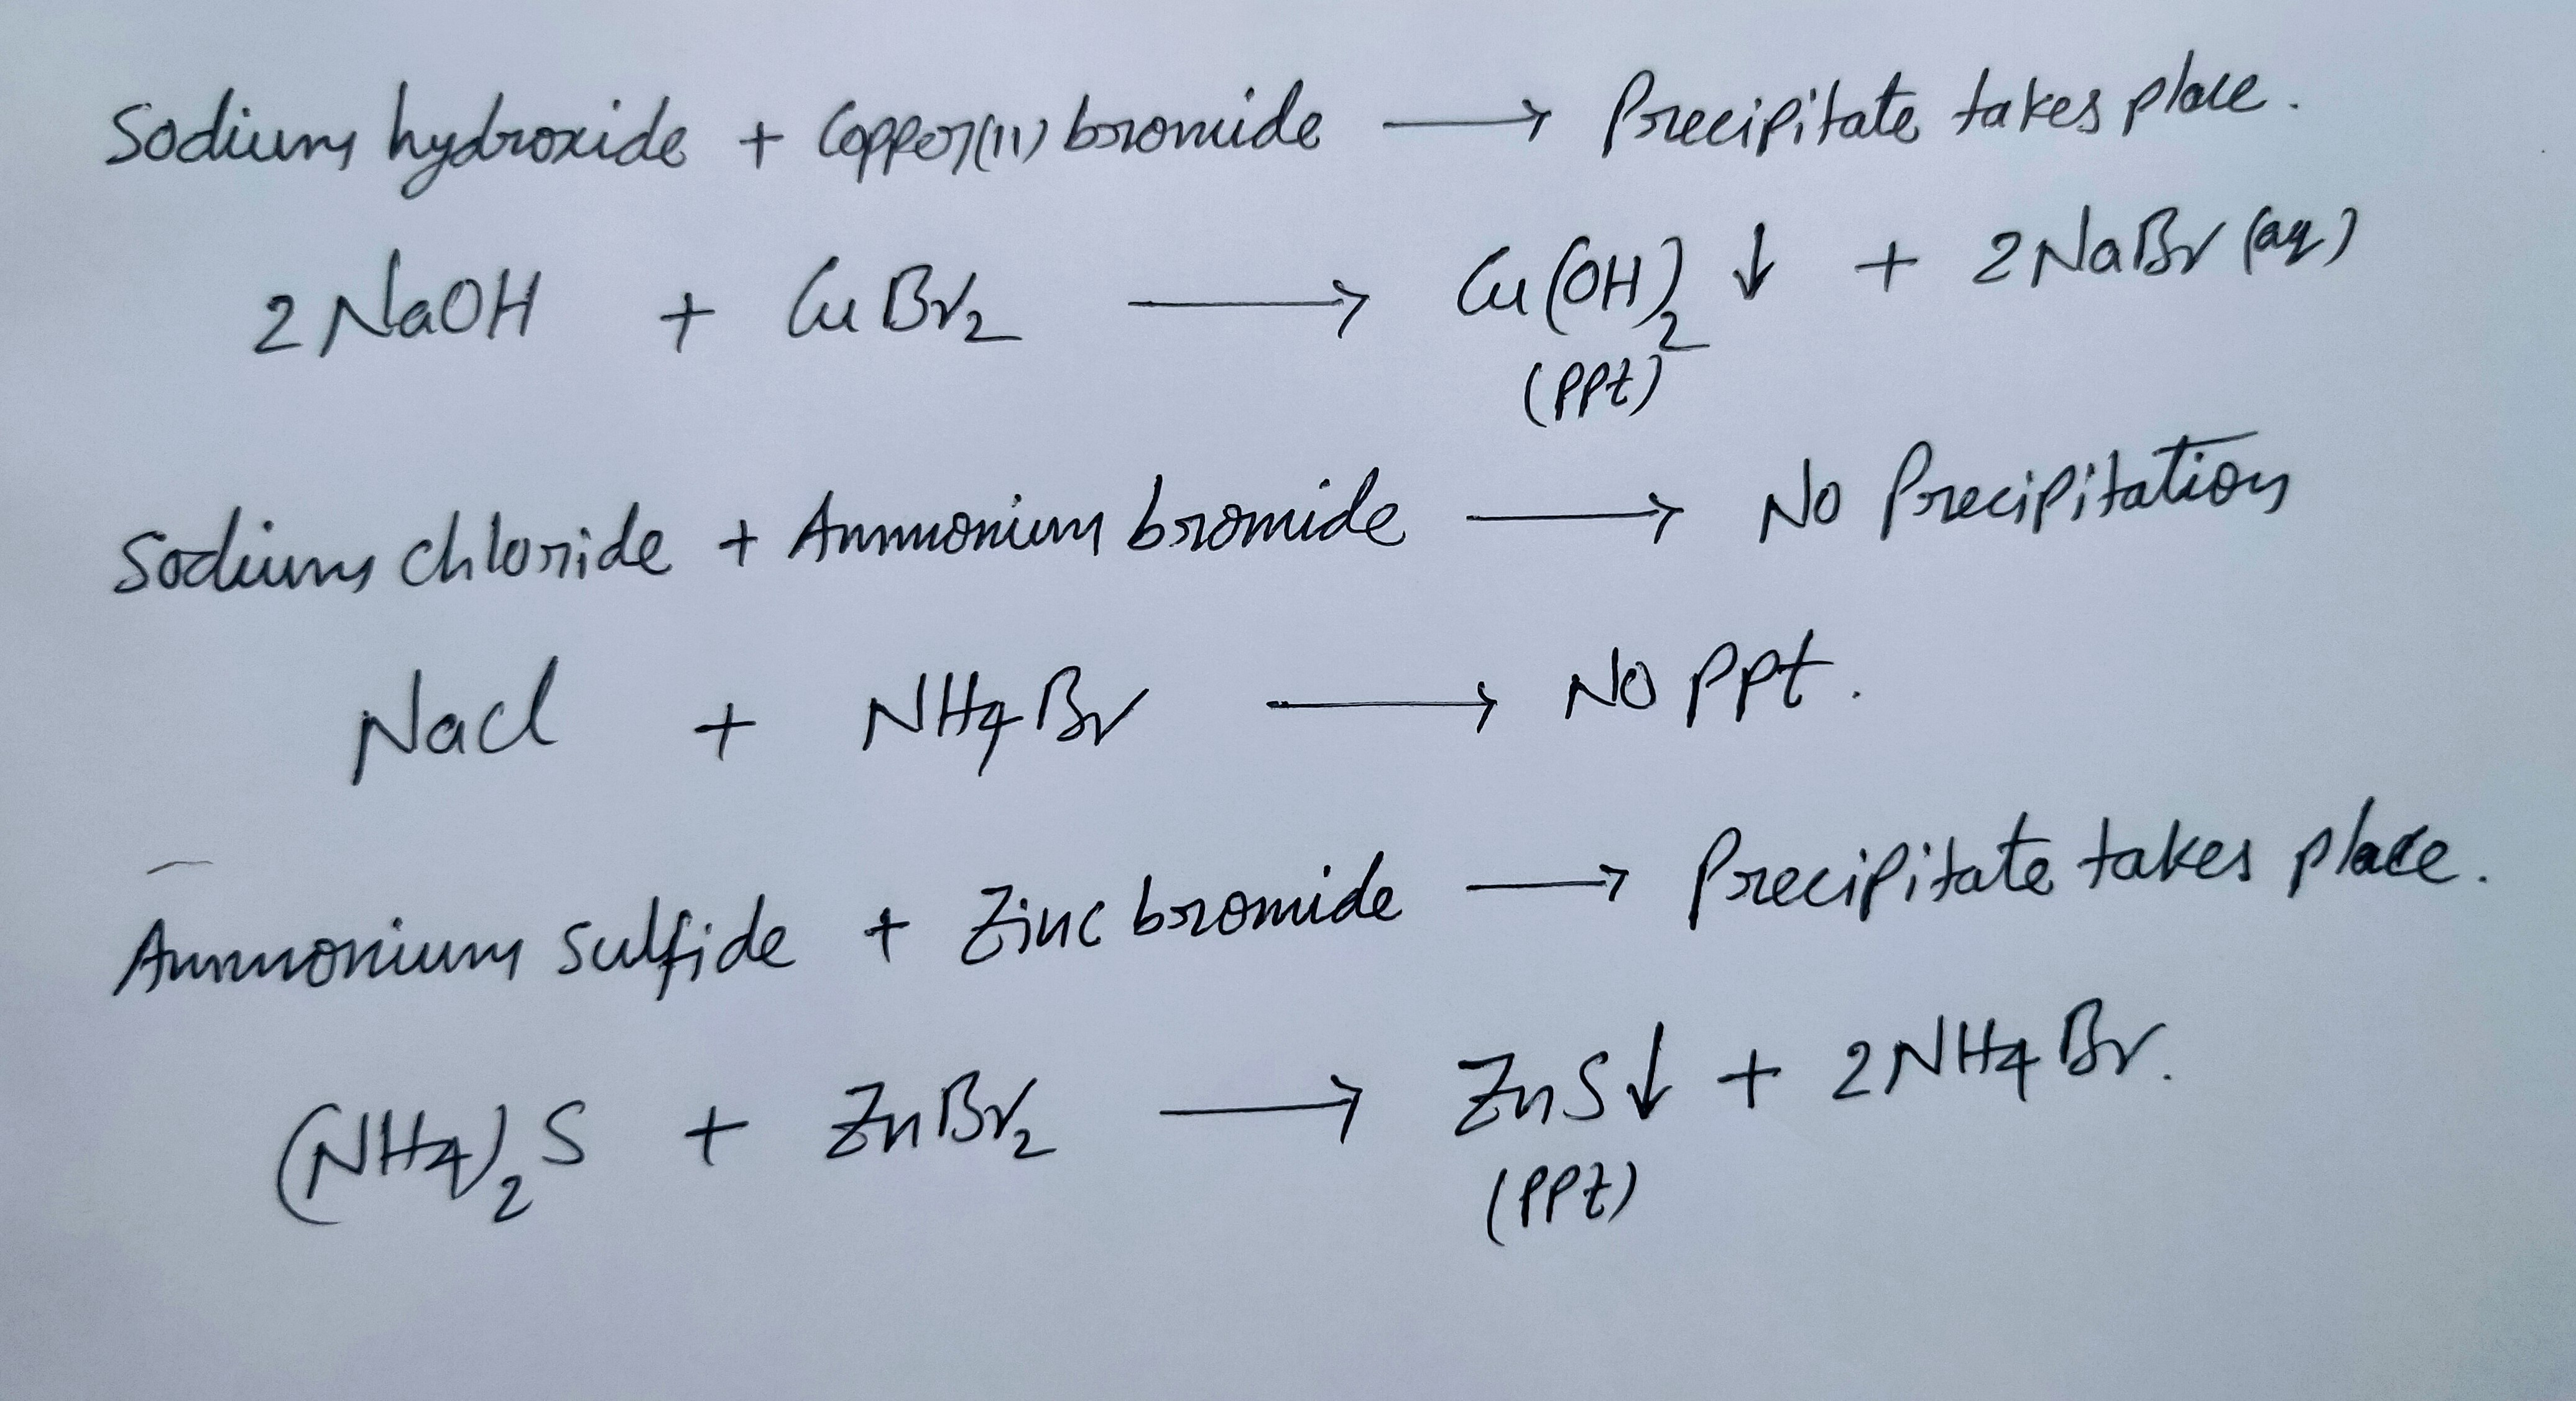 Sodium hydroxide + Copper(II) bromide → Precipitate takes place.
2 NaOH + CuBr₂ → Cu(OH)₂ ↓ + 2 NaBr (aq)
(PPt)
Sodium chloride + Ammonium bromide → No Precipitation
NaCl + NH₄Br → No PPt.
Ammonium sulfide + Zinc bromide → Precipitate takes place.
(NH₄)₂S + ZnBr₂ → ZnS↓ + 2NH₄Br.
(PPt)